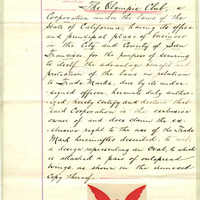 The Olympic Club, a
Corporation under the laws of the
State of California, having its office
and principal place of business
in the City and County of San
Francisco for the purpose of securing
to itself the advantage and
protection of the laws in relation
to Trade Marks, does by its under-
signed officer, hereunto duly author-
ized, hereby certify and declare that
said Corporation is the exclusive
owner of and does claim the ex-
clusive right to the use of the Trade
Mark hereinafter described, to wit,
a design representing an Oval, to which
is attached a pair of outspread
wings, as shown in the annexed
Copy thereof